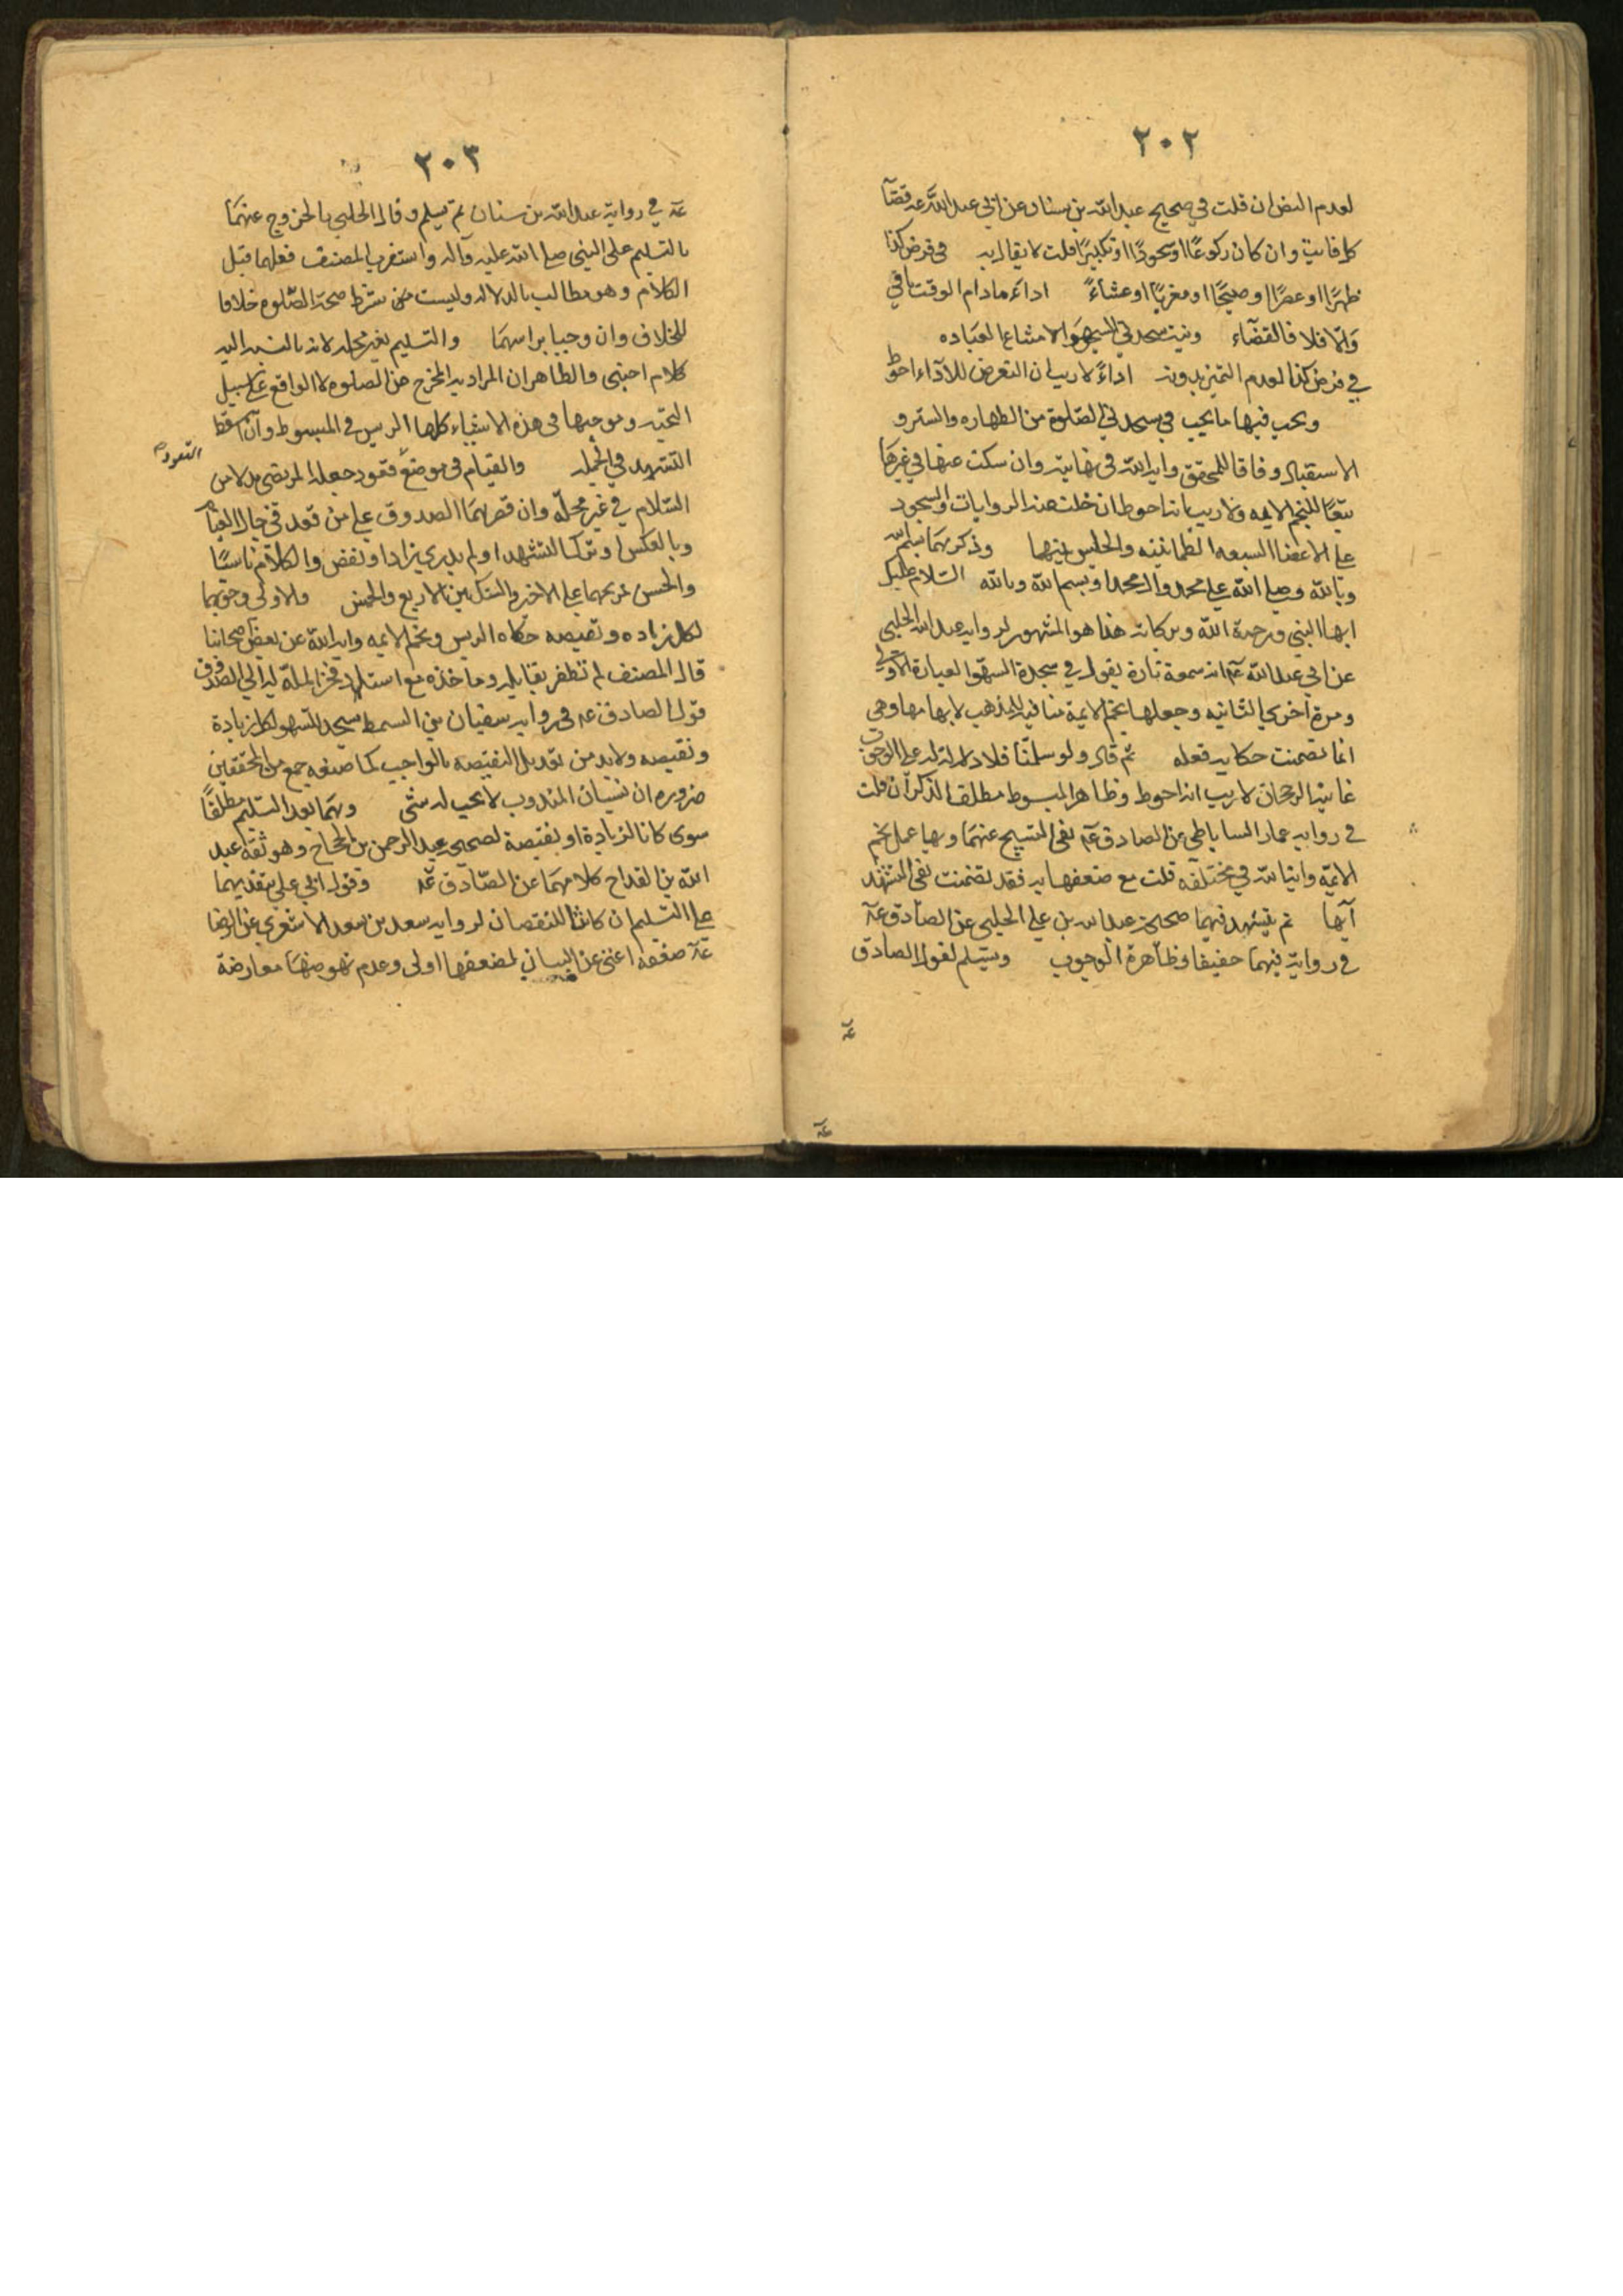 ٢٠٢
لعدم النص ان قلت في صحيح عبد الله بن سنان عن ابي عبد الله عه قضآ
كل فايت وان كان ركوعًا او سجودًا او تكبيرًا قلت لا يقال به في فرض كذا
ظهرًا او عصرًا او صبحًا او مغربًا او عشاءً اداءً مادام الوقت باقي
وَالّا فلا فالقضآء ونيت سجدتي السهو
في فرض كذا لعدم التميز بدونه اداءً لا ريب ان التعرض للآداء احوط
ويجب فيها ما يجب في سجدتي الصّلوة من الطهاره والستر و
الاستقبال وفاقا للمحقق وايه الله في نهايته وان سكت عنها في غيرها
تبعًا للنجم الايمه ولا ريب انه احوط ان خلت عنه الروايات والسجود
على الاعضا السبعه الطمانينه والجلوس بينهما وذكرهما بسلم الله
وبالله وصلى الله على محمد وال محمد او بسم الله وبالله السّلام عليك
ايها النبي ورحمة الله وبركاته هذا هو المشهور لروايه عبد الله الحلبي
عن ابي عبد الله عه انه سمعه تارة يقول في سجدة السهو العبارة الاولى
ومرة اخرى الثانيه وجعلها نجم الايمة منافيه للمذهب لابهامها وهي
انما تضمنت حكايه فعله ثم قال ولو سلمنا فلا دلالة له على الوجوب
غايته الرجحان لا ريب انه احوط وظاهر المبسوط مطلق الذكر ان قلت
في روايه عمار الساباطي عن الصادق عه نفى التسبيح عنهما وبها عمل نجم
الايمّه وايه الله في مختلفه قلت مع ضعفها به فقد تضمنت نفى التشهد
ثم يتشهد فيهما صحيحه عبد الله بن علي الحلبي عن الصادق عه
في روايته فيهما خفيفا وظاهره الوجوب ويسلم لقول الصادق
عه
٢٠٣
عه في رواية عبد الله بن سنان ثم يسلم وقال الحلبي بالخروج عنهما
بالتسليم على النبي صلى الله عليه وآله واستقرب المصنف فعلهما قبل
الكلام وهو مطالب بالدلاله وليست من شرط صحة الصّلوه خلافا
للخلاف وان وجبا براسهما والتسليم بغير محله لانه
كلام اجنبي والظاهر ان المراد به المخرج من الصلوه لا الواقع على سبيل
التحيه وموجبها في هذه الاشياء كلها الريس في المبسوط وان اسقط
التشهد في الجمل والقيام في موضع قعود جعله المرتضى بدلا من
القعود
السّلام في غير محلّه وان قصرهما الصدوق على من قعد في حال القيام
وبالعكس او ترك التشهد او لم يدر زاد او نقص والكلام ناسيًا
والحسن على الاخر والشك بين الاربع والخمس والاولى وجوبهما
لكل زياده ونقيصه حكاه الريس ونجم الايمه وايه الله عن بعض اصحابنا
قال المصنف لم نظفر بقايله وماخذه
قول الصادق عه في روايه سفيان بن السمط سجد للسهو لكل زيادة
ونقيصه ولا بد من تقديل النقيصه بالواجب كما صنعه جمع من المحققين
ضروره ان نسيان المندوب لا يجب له شئ وهما بعد التسليم مطلقًا
سوى كانا لزيادة او نقيصة لصحيح عبد الرحمن بن الحجاج وهو ثقه عبد
الله بن القداح كلاهما عن الصادق عه وقول ابي علي بتقديهما
على التسليم ان كانتا للنقصان لروايه سعد بن سعد الاشعري عن الرضا
عه ضعفه اغنى عن البيان لضعفها اولى وعدم نهوضها معارضة